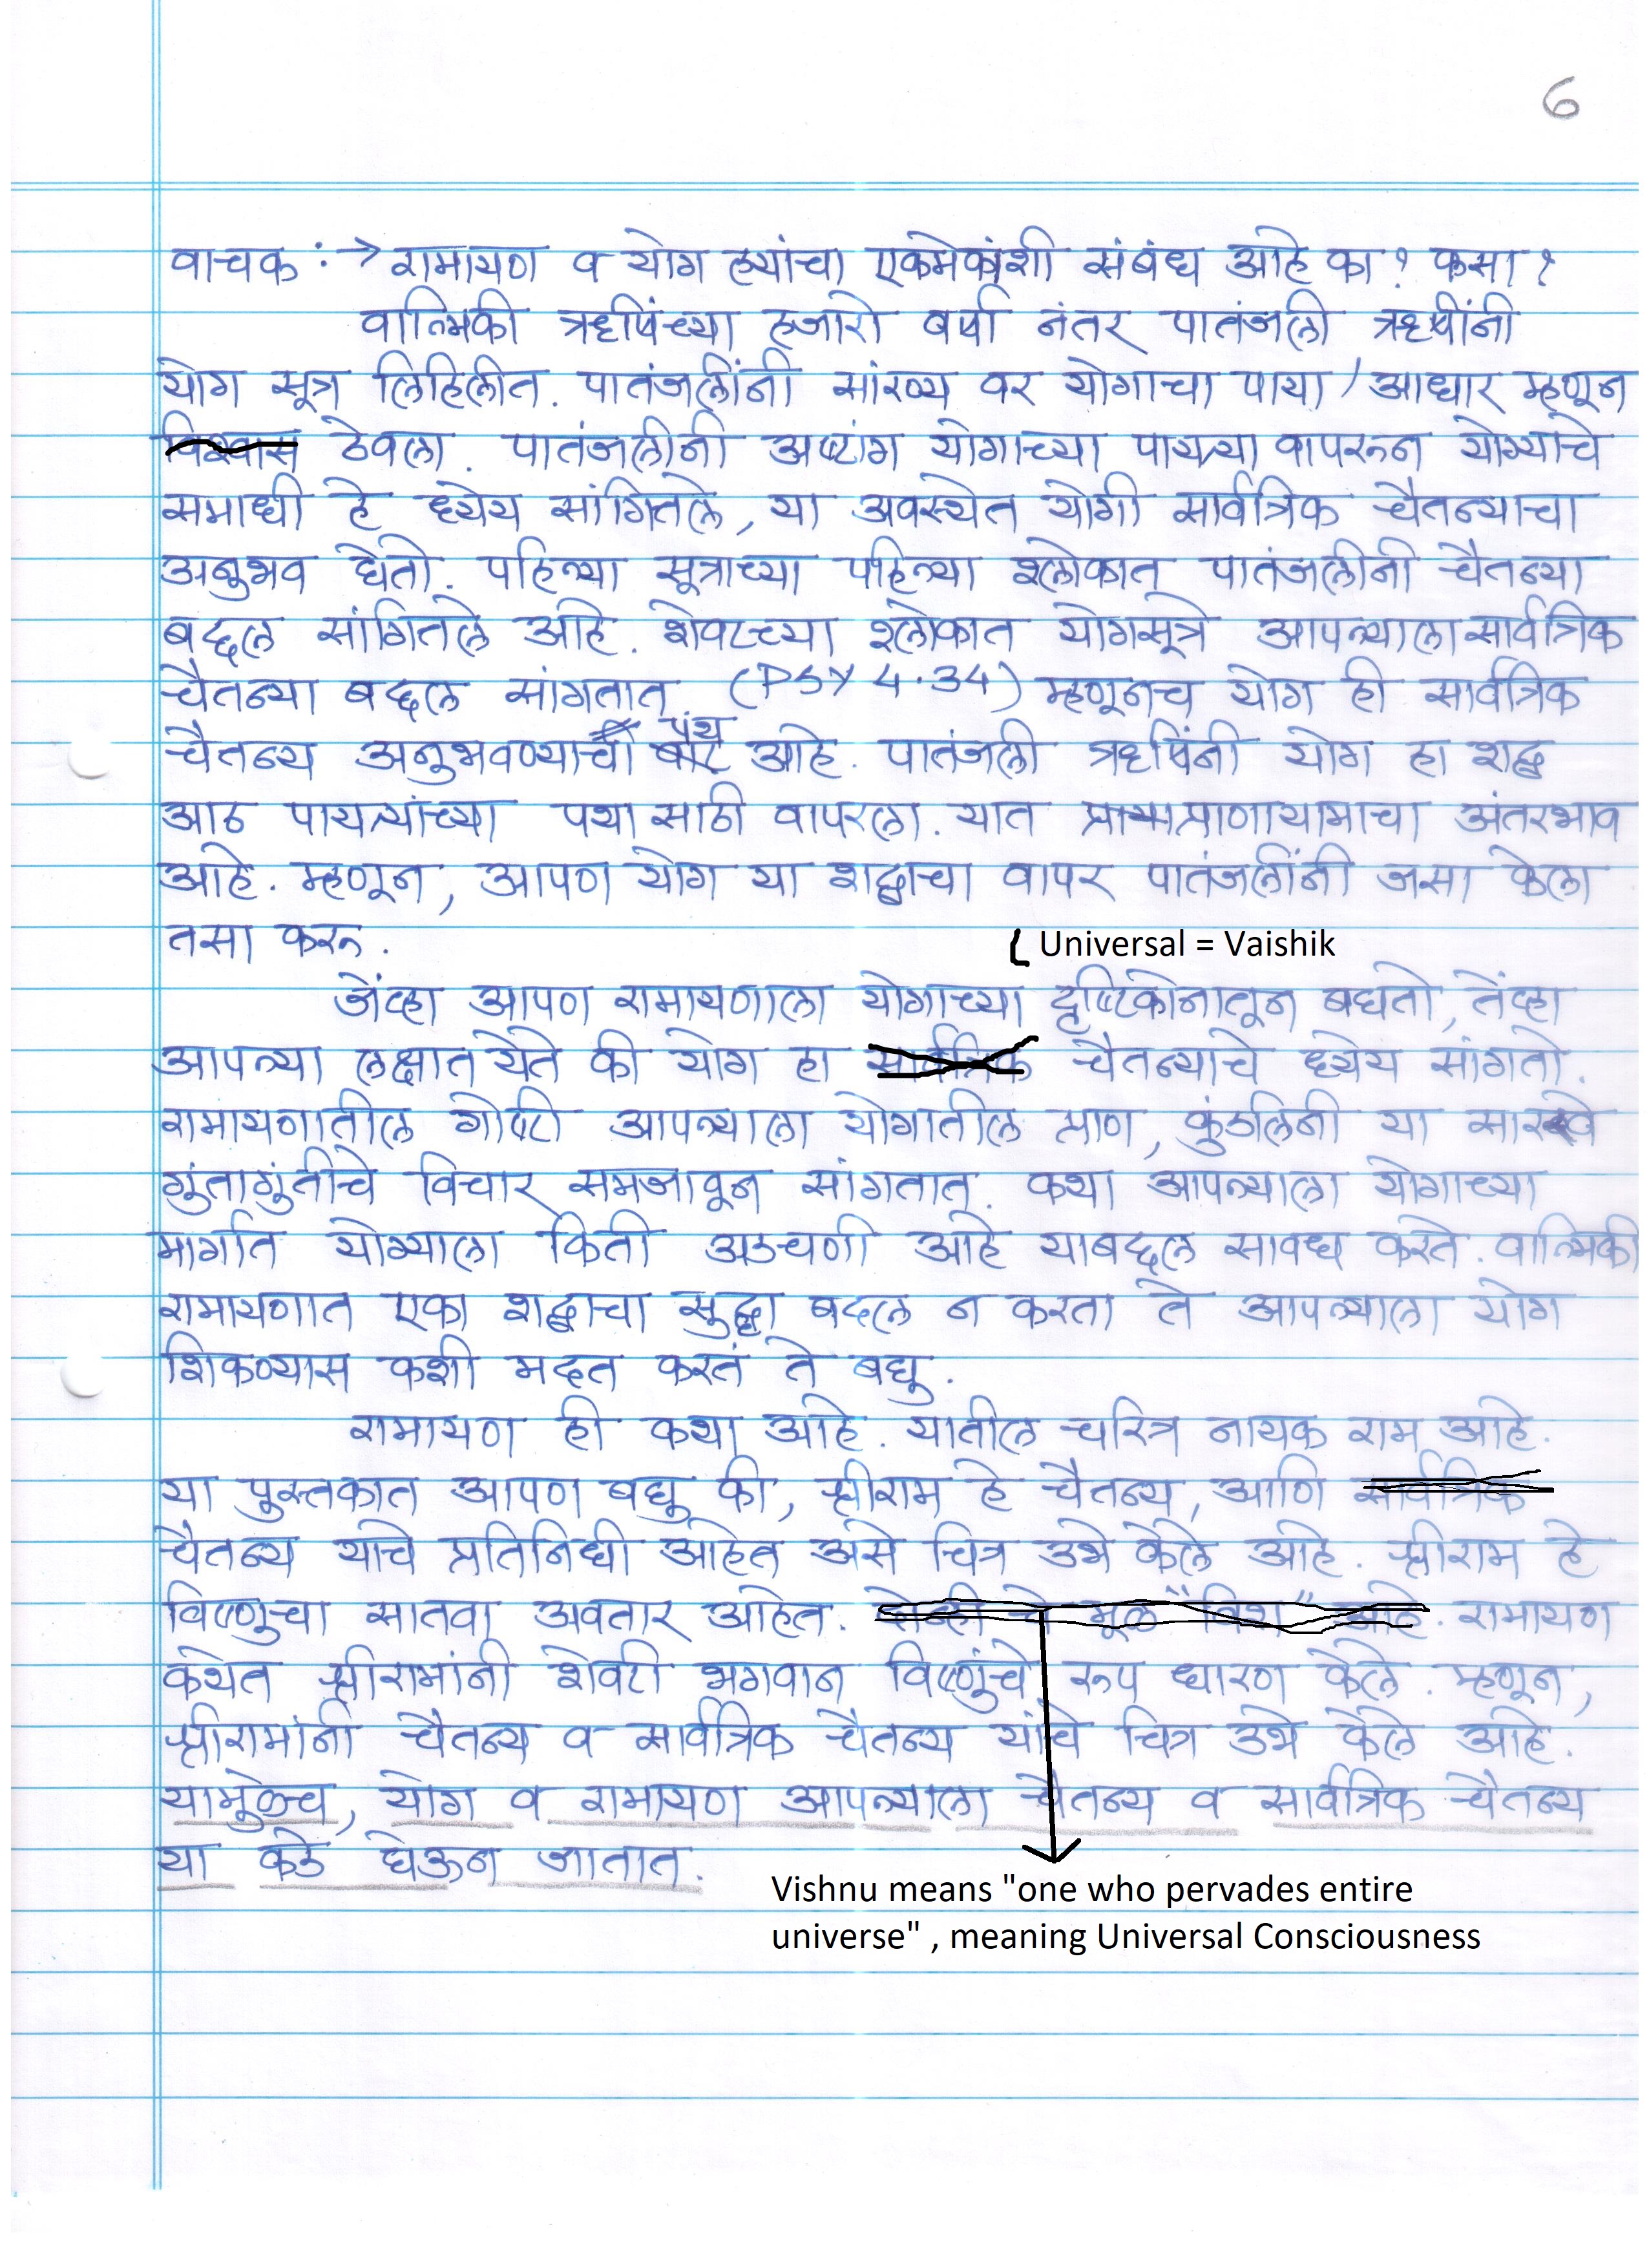 6
वाचक : → रामायण व योग ह्यांचा एकमेकांशी संबंध आहे का? कसा?
वाल्मिकी ऋषिंच्या हजारो वर्षा नंतर पातंजली ऋषींनी
योग सूत्र लिहिलीत. पातंजलींनी सांख्य वर योगाचा पाया / आधार म्हणून
विश्वास ठेवला. पातंजलीनी अष्टांग योगाच्या पायऱ्या वापरून योग्याचे
समाधी हे ध्येय सांगितले, या अवस्थेत योगी सार्वत्रिक चैतन्याचा
अनुभव घेतो. पहिल्या सूत्राच्या पहिल्या श्लोकात पातंजलीनी चैतन्या
बद्दल सांगितले आहे. शेवटच्या श्लोकात योगसूत्रे आपल्याला सार्वत्रिक
चैतन्या बद्दल सांगतात (PSY 4.34) म्हणूनच योग ही सार्वत्रिक
पंथ
चैतन्य अनुभवण्याची वाट आहे. पातंजली ऋषिंनी योग हा शब्द
आठ पायऱ्यांच्या पथा साठी वापरला. यात प्राणायामाचा अंतरभाव
आहे. म्हणून, आपण योग या शब्दाचा वापर पातंजलींनी जसा केला
तसा करू.
Universal = Vaishik
जेंव्हा आपण रामायणाला योगाच्या दृष्टिकोनातून बघतो, तेंव्हा
आपल्या लक्षात येते की योग हा सार्वत्रिक चैतन्याचे ध्येय सांगतो.
रामायणातील गोष्टी आपल्याला योगातील प्राण, कुंडलिनी या सारखे
गुंतागुंतीचे विचार समजावून सांगतात. कथा आपल्याला योगाच्या
मार्गात योग्याला किती अडचणी आहे याबद्दल सावध करते. वाल्मिकी
रामायणात एका शब्दाचा सुद्धा बदल न करता ते आपल्याला योग
शिकण्यास कशी मदत करतं ते बघु.
रामायण ही कथा आहे. यातील चरित्र नायक राम आहे.
या पुस्तकात आपण बघु की, श्रीराम हे चैतन्य, आणि सार्वत्रिक
चैतन्य याचे प्रतिनिधी आहेत असे चित्र उभे केले आहे. श्रीराम हे
विष्णुचा सातवा अवतार आहेत. चे मूळ "विश" आहे. रामायण
कथेत श्रीरामांनी शेवटी भगवान विष्णुंचे रूप धारण केले. म्हणून,
श्रीरामांनी चैतन्य व सार्वत्रिक चैतन्य यांचे चित्र उभे केले आहे.
यामुळेच, योग व रामायण आपल्याला चैतन्य व सार्वत्रिक चैतन्य
या कडे घेऊन जातात.
Vishnu means "one who pervades entire
universe" , meaning Universal Consciousness